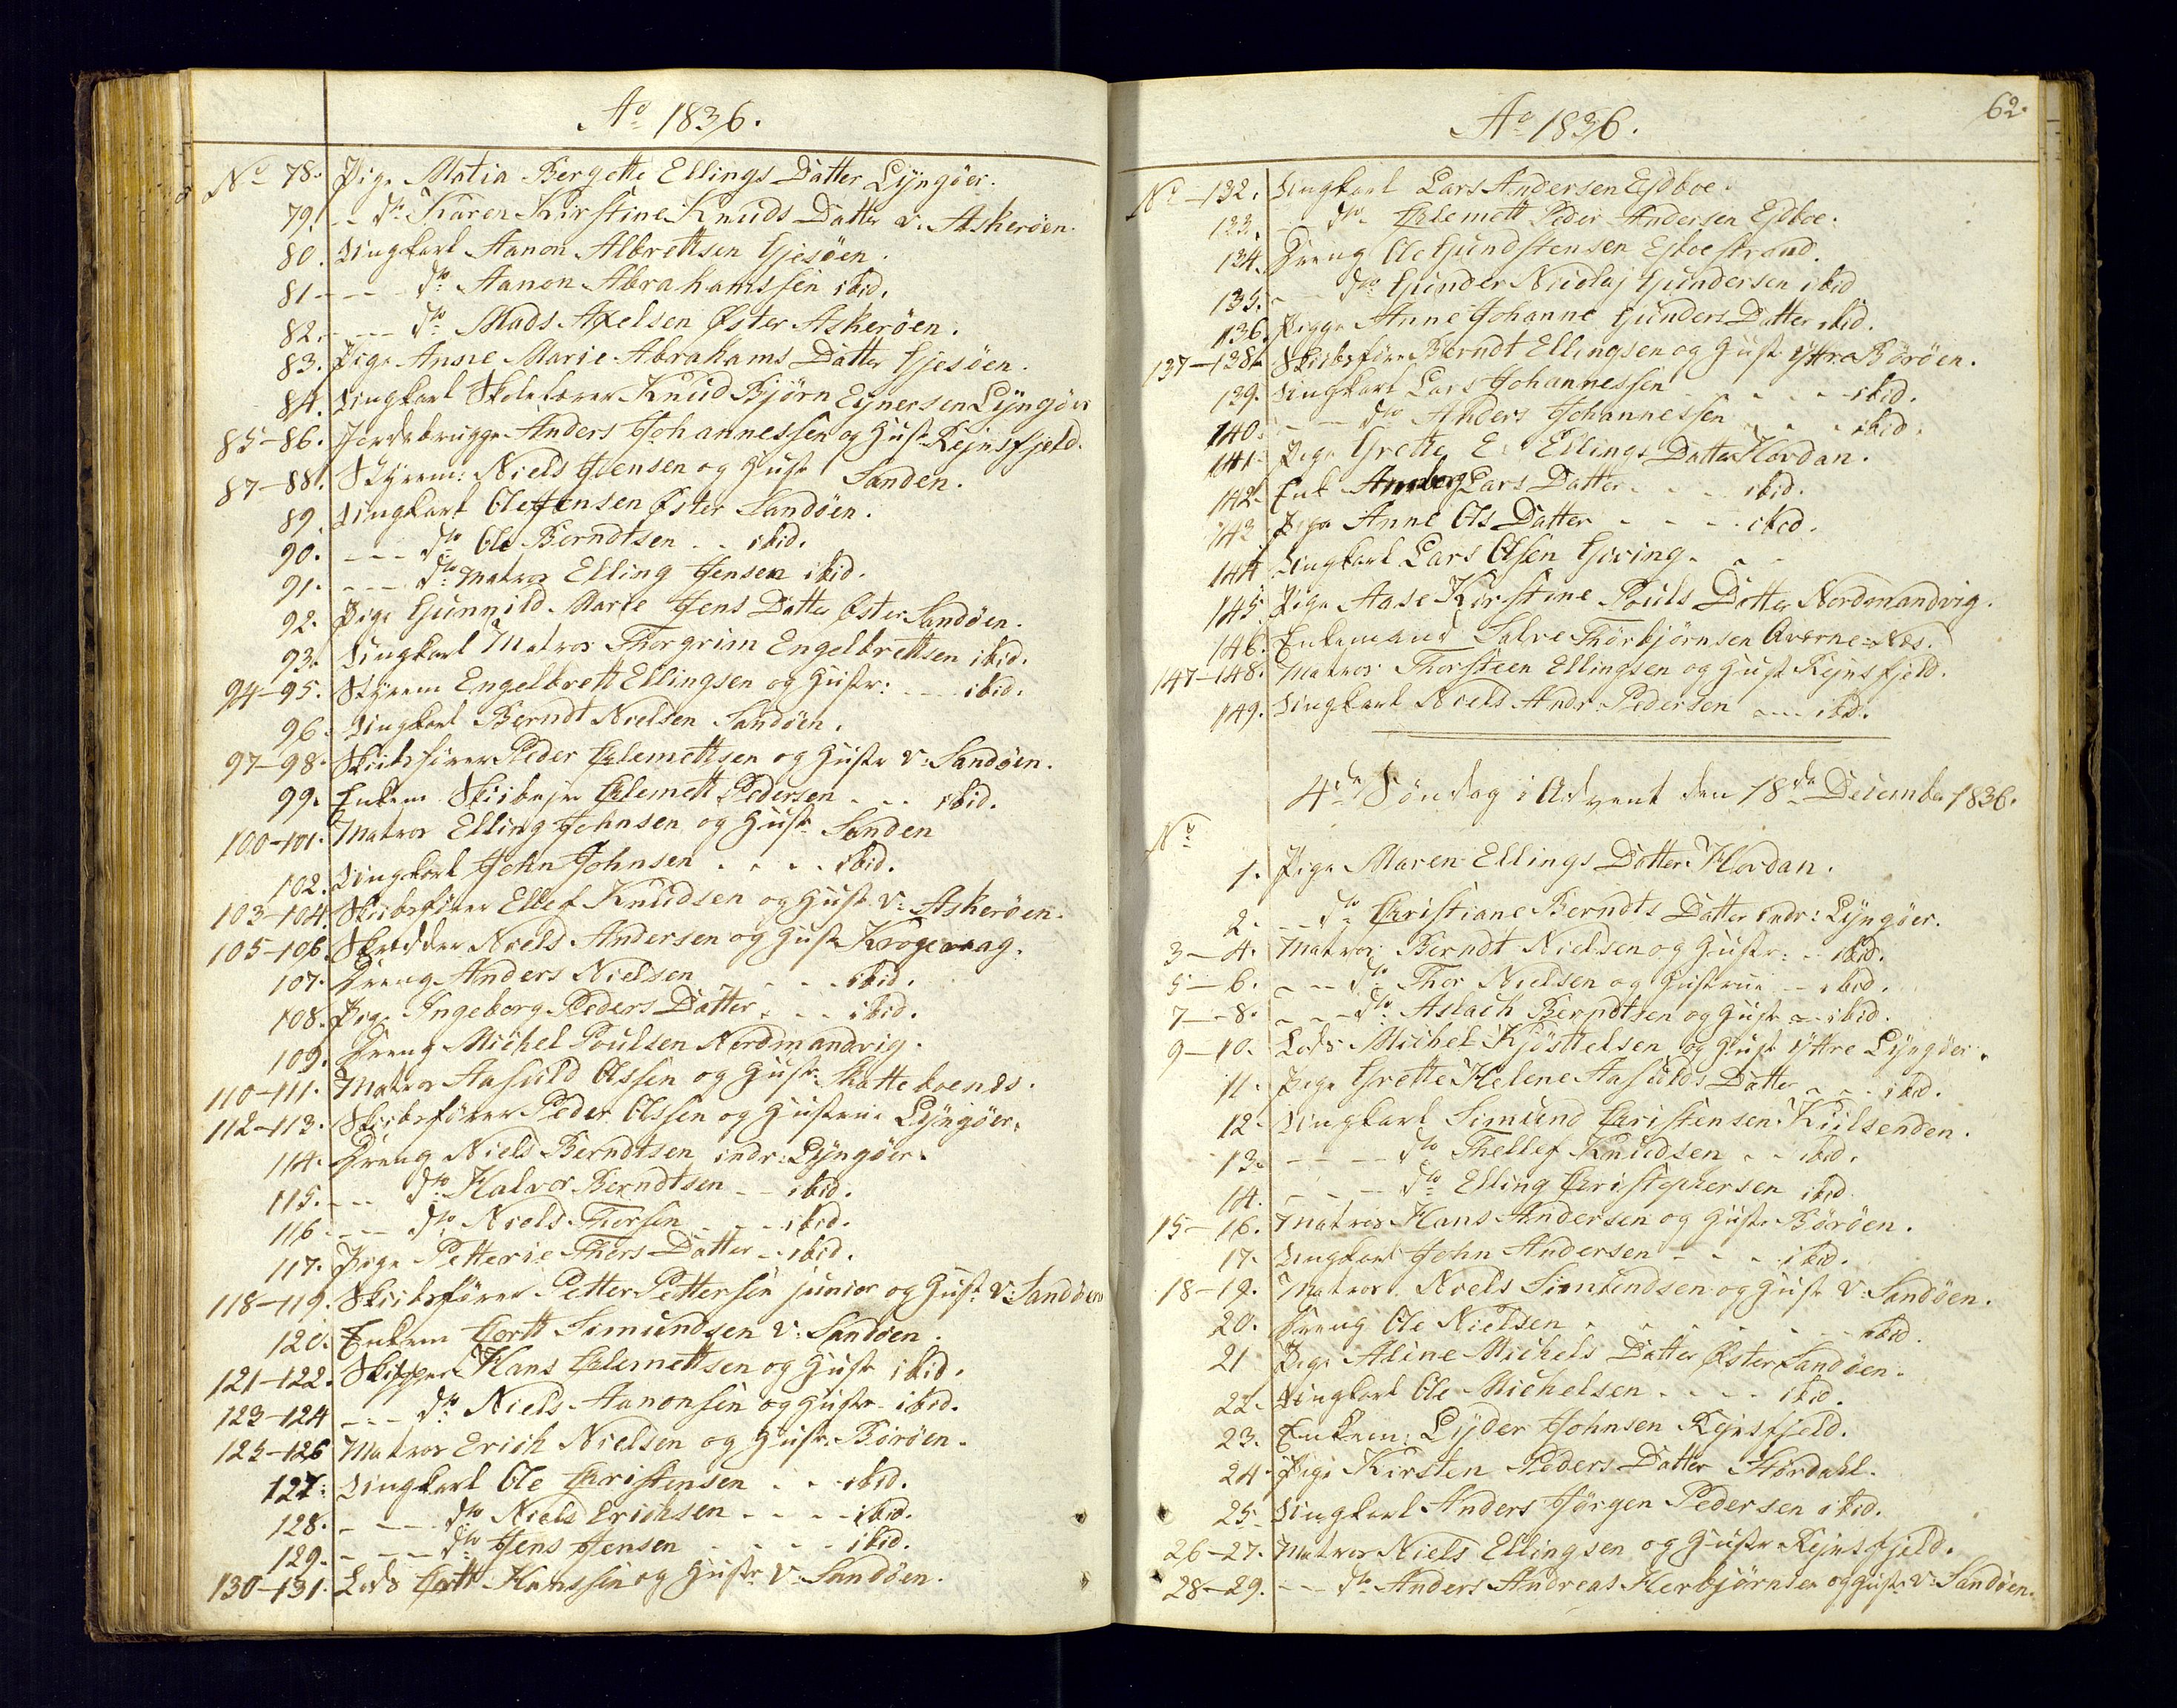 Ao 1836.
No 78. Pige Matia Bergette Ellings Datter Lyngöer.
79. -- do Karen Kirstine Knuds Datter v: Askeröen.
80. Ungkarl Aanon Albrettsen Gjesöen.
81 --- do Aanon Abrahamssen ibid.
82. --- do Mads Axelsen Öster Askeröen.
83. Pige Anne Marie Abrahams Datter Gjesöen.
84. Ungkarl Skolelærer Knud Bjørn Eynersen Lyngöer
85-86. Jordebrugger Anders Johannessen og Hustr Rejnsfjeld.
87-88. Styrem: Niels Jensen og Hustr Sanden.
89. Ungkarl Ole Jensen Öster Sandöen.
90. --- do Ole Berndtsen .. ibid.
91. --- do Matros Elling Jensen ibid.
92. Pige Gunnild Marie Jens Datter Öster Sandöen.
93. Ungkarl Matros Thorgrim Engelbrettsen ibid.
94-95. Styrem Engelbrett Ellingsen og Hustr: --- ibid.
96. Ungkarl Berndt Nielsen Sandöen.
97-98. Skibsfører Peder Clemettsen og Hustr v: Sandöen.
99. Enkem Skibsejer Clemett Pedersen ... ibid.
100-101. Matros Elling Johnsen og Hustr Sanden
102. Ungkarl John Johnsen .... ibid.
103-104. Skibsfører Ellef Knudsen og Hustr v: Askeröen.
105-106. Skrædder Niels Andersen og Hustr Krogevaag.
107. Dreng Anders Nielsen ... ibid.
108. Pige Ingeborg Peders Datter ... ibid.
109. Dreng Michel Poulsen Nordmandvig.
110-111. Matros Aasuld Olssen og Hustr: Skatteboenes.
112-113. Skibsfører Peder Olssen og Hustrue Lyngöer.
114. Dreng Niels Berndtsen indr: Lyngöer.
115. -- do Halvor Berndtsen -- ibid.
116 --- do Niels Thorsen --- ibid.
117. Pige Petterie Thors Datter -- ibid.
118-119. Skibsfører Petter Pettersen junior og Hustr v: Sandöen
120. Enkem Cortt Simundsen v: Sandöen.
121-122. Skipper Hans Clemettsen og Hustr ibid.
123-124 --- do Niels Aanonsen og Hustr ibid.
125-126 Matros Erich Nielsen og Hustr Böröen.
127: Ungkarl Ole Christensen ... ibid.
128. - --- do Niels Erichsen .... ibid.
129. - --- do Jens Jensen .... ibid.
130-131. Lods Cortt Hanssen og Hustr v: Sandöen.
62.
Ao 1836.
No 132. Ungkarl Lars Andersen EJdboe.
133. -- do Clemett Peder Andersen Ejdboe.
134. Dreng Ole Gundstensen Ejboestrand.
135. - -- do Gunder Nicolaj Gundersen ibid
136. Pige Anne Johanne Gunders Datter ibid.
137-138. Skibsfører Berndt Ellingsen og Hustr Yttre Böröen.
139. Ungkarl Lars Johannessen .... ibid.
140. -- do Anders Johannessen ... ibid.
141. Pige Grette E. Ellings Datter Hovdan.
142. Enk Annborg Lars Datter .... ibid.
143. Pige Anne Ols Datter .... ibid.
144 Ungkarl Lars Olsen Giving. . .
145. Pige Aase Kirstine Pouls Datter Nordmandvig.
146. Enkemand Salve Thorbjørnsen Qværne-Næs.
147-148. Matros Thorsteen Ellingsen og Hustr Rejnsfjeld.
149. Ungkarl Niels Andr: Pedersen ---- ibid.
4de Söndag i Advent den 18de December 1836.
No
1. Pige Maren Ellings Datter Hovdan.
2. -- do Christiane Berndts Datter indr: Lyngöer.
3-4. Matros Berndt Nielsen og Hustr: - ibid.
5-6. --- do Thor Nielsen og Hustrue -- ibid.
7-8. --- do Aslach Berndtsen og Hustr -- ibid.
9-10. Lods Michel Kjösttelsen og Hustr Yttre Lyngöer.
11. Pige Grette Helene Aasulds Datter --- ibid.
12. Ungkarl Simund Christensen Kiilsenden.
13. - --- do Thellef Knudsen .. ibid.
14. - --- do Elling Christophersen ibid
15-16. Matros Hans Andersen og Hustr Böröen.
17. Ungkarl John Andersen - - - ibid.
18-19. Matros Niels Simundsen og Hustr v: Sandöen.
20. Dreng Ole Nielsen . . . . . . ibid.
21 Pige Aline Michels Datter Öster Sandöen.
22. Ungkarl Ole Michelsen .... ibid.
23. Enkem: Lyder Johnsen Rejnsfjeld.
24. Pige Kirsten Peders Datter Stördahl.
25. Ungkarl Anders Jörgen Pedersen ibid.
26-27. Matros Niels Ellingsen og Hustr Rejnsfjeld.
28-29. --- do Anders Andreas Herbjørnsen og Hustr v: Sandöen.